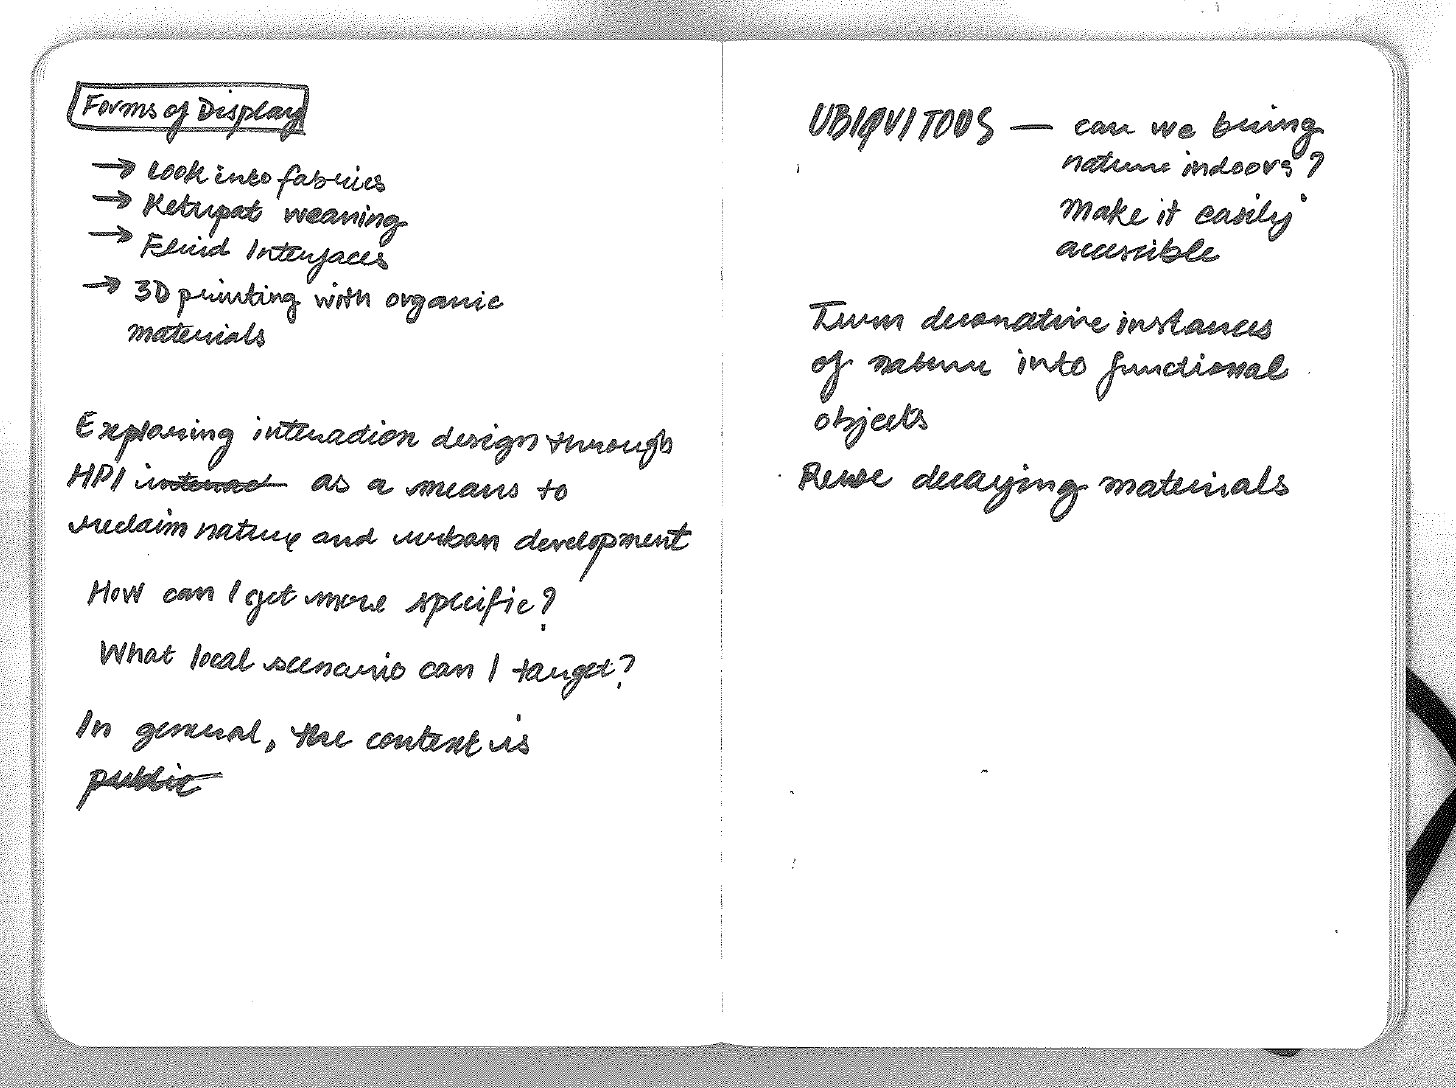 Forms of Display
→ Look into fabrics
→ Ketupat weaving
→ Fluid Interfaces
→ 3D printing with organic
materials
Exploring interaction design through
HPI interact as a means to
reclaim nature and urban development
How can I get more specific?
What local scenario can I target?
In general, the context is
public
UBIQUITOUS — can we bring
nature indoors?
Make it easily
accessible
Turn decorative instances
of nature into functional
objects
Reuse decaying materials